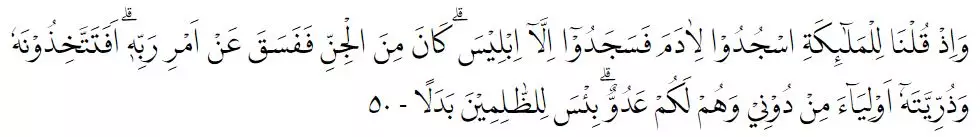 وَاِذْ قُلْنَا لِلْمَلٰۤىِٕكَةِ اسْجُدُوْا لِاٰدَمَ فَسَجَدُوْٓا اِلَّآ اِبْلِيْسَۗ كَانَ مِنَ الْجِنِّ فَفَسَقَ عَنْ اَمْرِ رَبِّهٖۗ اَفَتَتَّخِذُوْنَهٗ
وَذُرِّيَّتَهٗٓ اَوْلِيَاۤءَ مِنْ دُوْنِيْ وَهُمْ لَكُمْ عَدُوٌّۗ بِئْسَ لِلظّٰلِمِيْنَ بَدَلًا - ٥٠